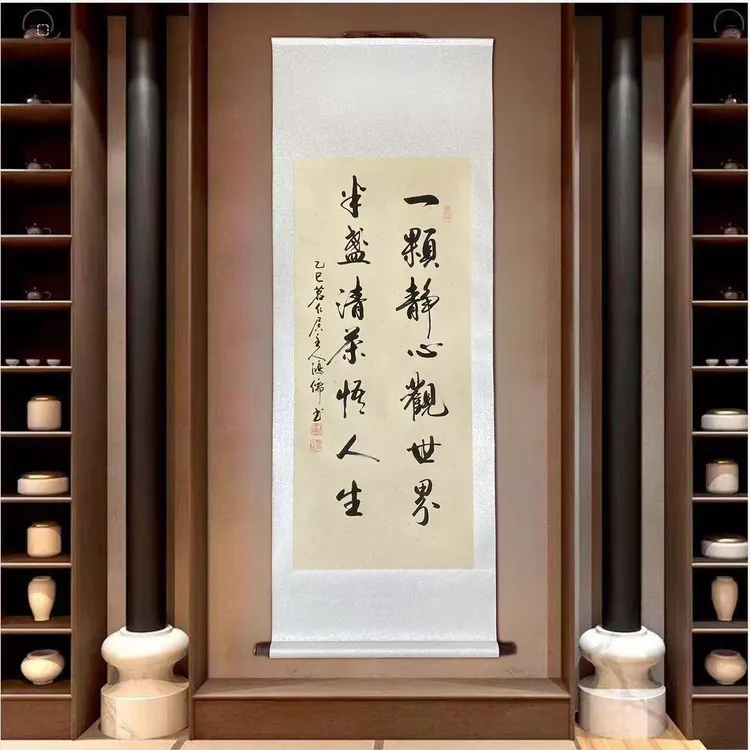 一顆静心觀世界
半盏清茶悟人生
乙巳茗仁居主人鴻儒书